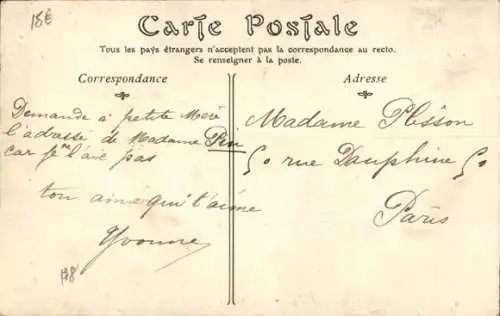 18€
Carte Postale
Tous les pays étrangers n'acceptent pas la correspondance au recto.
Se renseigner à la poste.
Correspondance
Demande à petite Mère
l'adresse de Madame Pin
car je n l'aie pas
ton ainé qui t'aime
Yvonne
Adresse
Madame Plisson
50 rue Dauphine 50
Paris